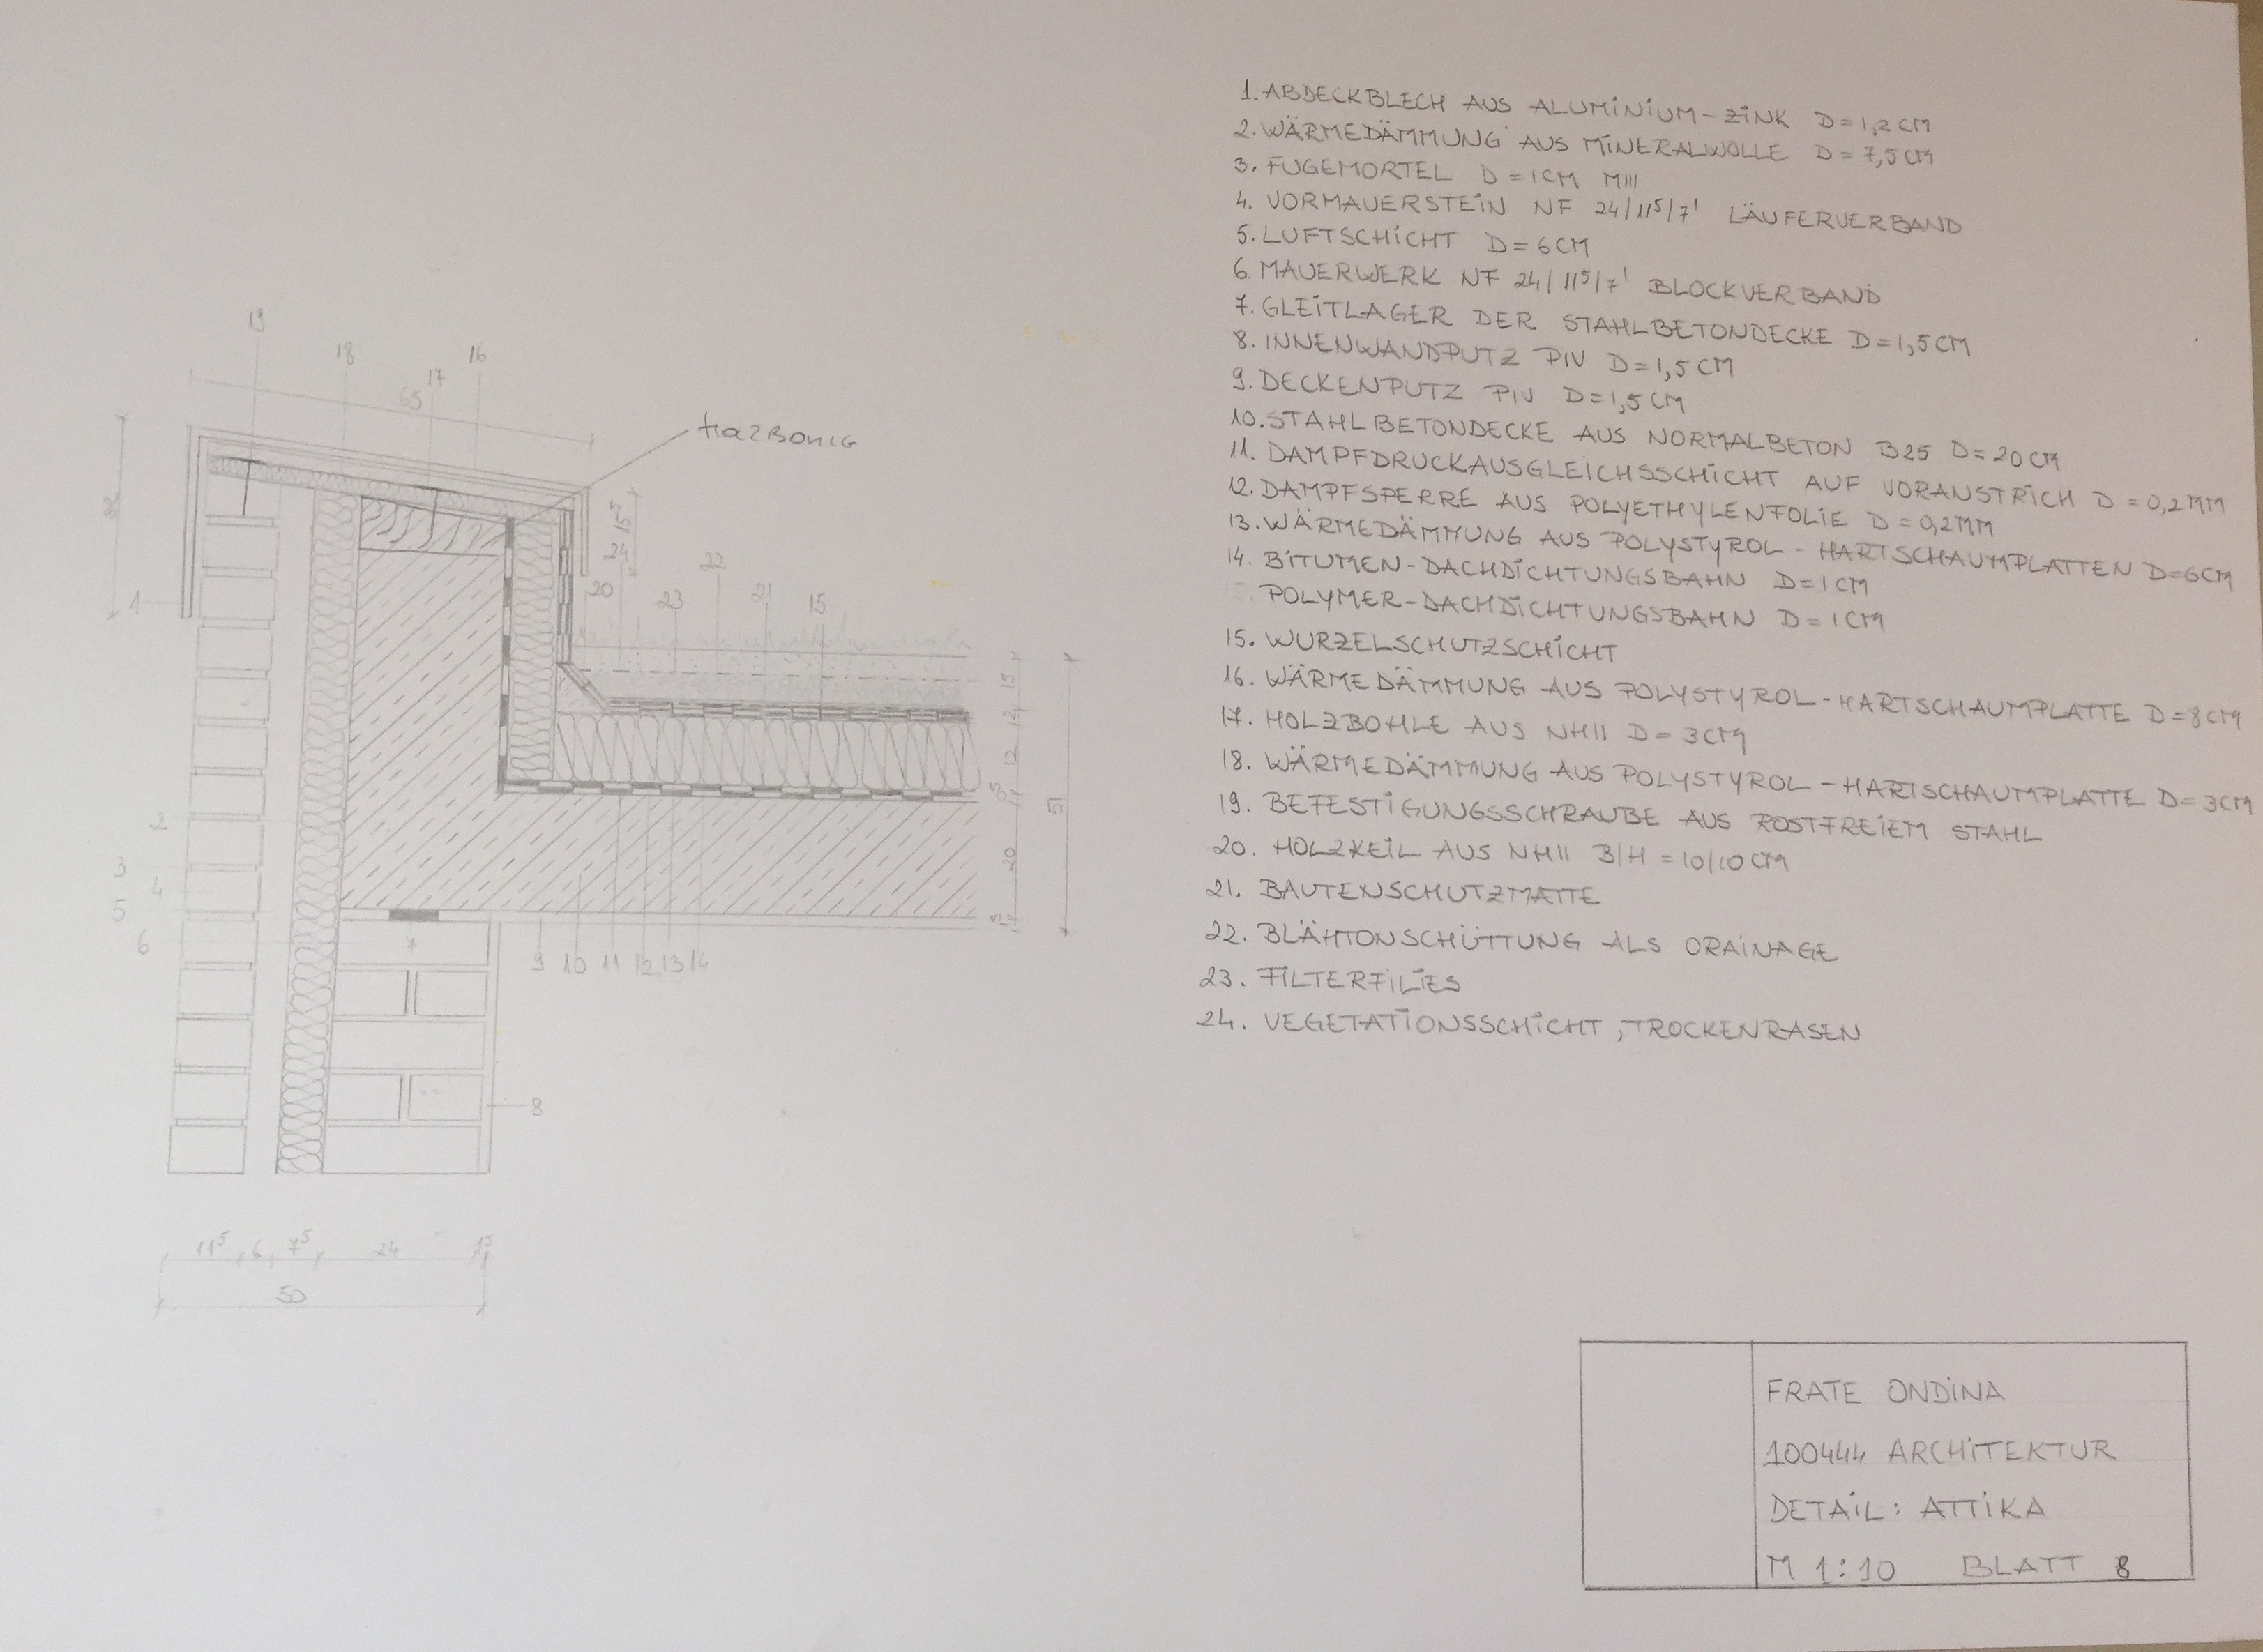 1. ABDECKBLECH AUS ALUMINIUM-ZINK D=1,2CM
2. WÄRMEDÄMMUNG AUS MINERALWOLLE D=7,5CM
3. FUGEMORTEL D=1CM MIII
4. VORMAUERSTEIN NF 24/11⁵/7¹ LÄUFERVERBAND
5. LUFTSCHICHT D=6CM
6. MAUERWERK NF 24/11⁵/7¹ BLOCKVERBAND
7. GLEITLAGER DER STAHLBETONDECKE D=1,5CM
8. INNENWANDPUTZ PIV D=1,5CM
9. DECKENPUTZ PIV D=1,5CM
10. STAHLBETONDECKE AUS NORMALBETON B25 D=20CM
11. DAMPFDRUCKAUSGLEICHSSCHICHT AUF VORANSTRICH D=0,2MM
12. DAMPFSPERRE AUS POLYETHYLENFOLIE D=0,2MM
13. WÄRMEDÄMMUNG AUS POLYSTYROL-HARTSCHAUMPLATTEN D=6CM
14. BITUMEN-DACHDICHTUNGSBAHN D=1CM
POLYMER-DACHDICHTUNGSBAHN D=1CM
15. WURZELSCHUTZSCHICHT
16. WÄRMEDÄMMUNG AUS POLYSTYROL-HARTSCHAUMPLATTE D=8CM
17. HOLZBOHLE AUS NHII D=3CM
18. WÄRMEDÄMMUNG AUS POLYSTYROL-HARTSCHAUMPLATTE D=3CM
19. BEFESTIGUNGSSCHRAUBE AUS ROSTFREIEM STAHL
20. HOLZKEIL AUS NHII B/H=10/10CM
21. BAUTENSCHUTZMATTE
22. BLÄHTONSCHÜTTUNG ALS DRAINAGE
23. FILTERFILIES
24. VEGETATIONSSCHICHT, TROCKENRASEN
19
18
17
16
65
15⁵
24
20
23
22
21
15
1
15
12
51
2
3
4
5
6
7
20
9 10 11 12 13 14
8
11⁵ 6 7⁵ 24 1⁵
50
FRATE ONDINA
100444 ARCHITEKTUR
DETAIL: ATTIKA
M 1:10 BLATT 8